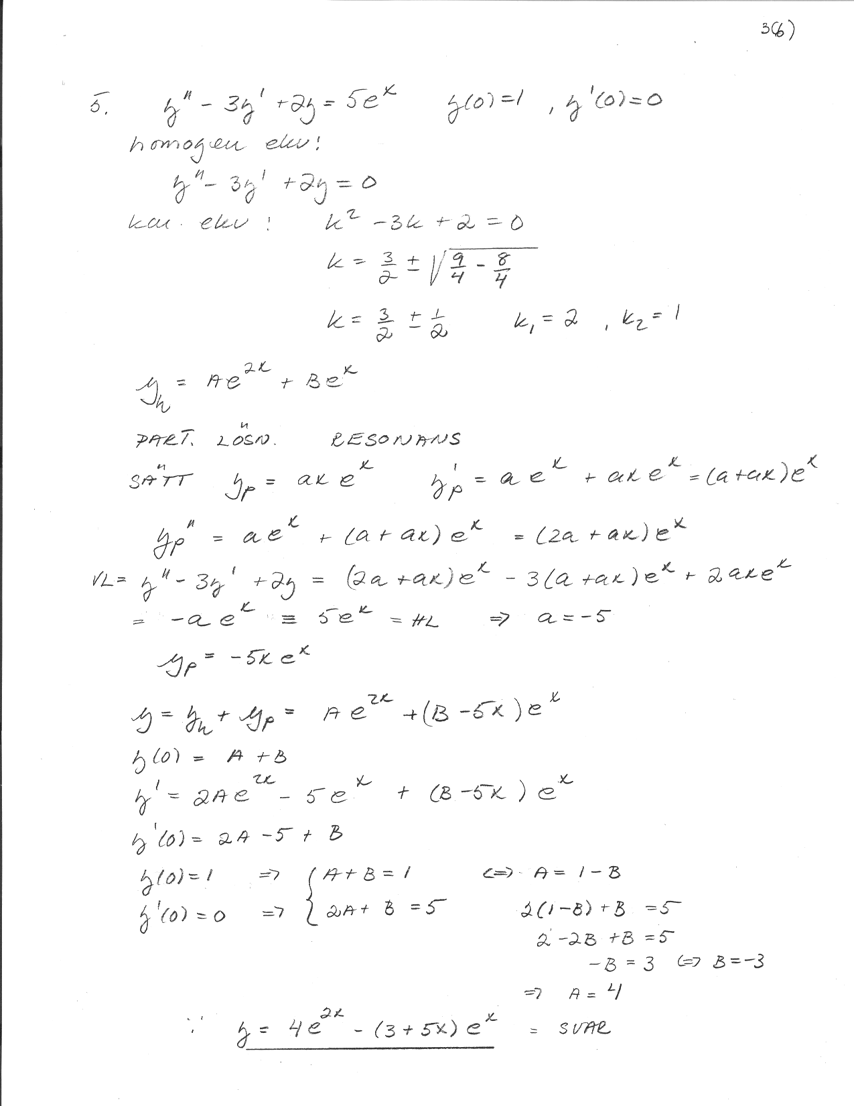 3(6)
5. y'' - 3y' + 2y = 5e^x y(0) = 1 , y'(0) = 0
homogen ekv:
y'' - 3y' + 2y = 0
kar. ekv : k² - 3k + 2 = 0
k = 3/2 ± √(9/4 - 8/4)
k = 3/2 ± 1/2 k₁ = 2 , k₂ = 1
y_h = Ae^{2x} + Be^x
PART. LÖSN. RESONANS
SÄTT y_p = ax e^x y_p' = a e^x + ax e^x = (a+ax)e^x
y_p'' = ae^x + (a+ax)e^x = (2a+ax)e^x
VL = y'' - 3y' + 2y = (2a+ax)e^x - 3(a+ax)e^x + 2axe^x
= -a e^x ≡ 5e^x = HL ⇒ a = -5
y_p = -5x e^x
y = y_h + y_p = A e^{2x} + (B - 5x) e^x
y(0) = A + B
y' = 2Ae^{2x} - 5e^x + (B - 5x) e^x
y'(0) = 2A - 5 + B
y(0) = 1 ⇒ { A + B = 1 ⇔ A = 1 - B
y'(0) = 0 ⇒ { 2A + B = 5 2(1-B) + B = 5
2 - 2B + B = 5
-B = 3 ⇔ B = -3
⇒ A = 4
∵ y = 4e^{2x} - (3 + 5x) e^x = SVAR